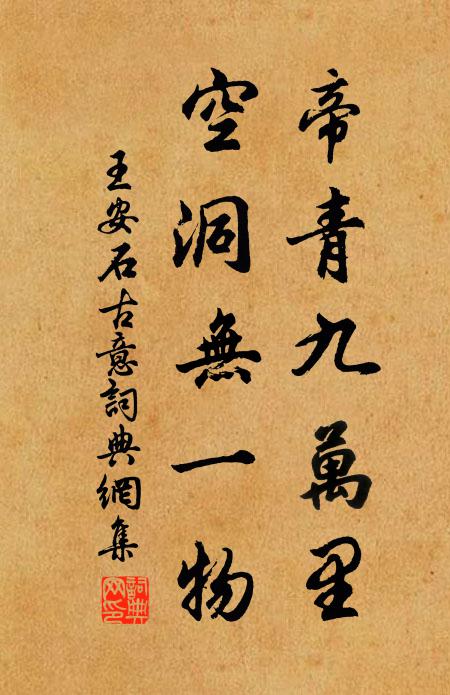 帝青九萬里
空洞無一物
王安石古意詞典網集
詞典網印